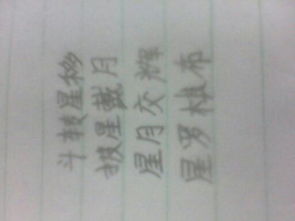 斗转星移
披星戴月
星月交辉
星罗棋布